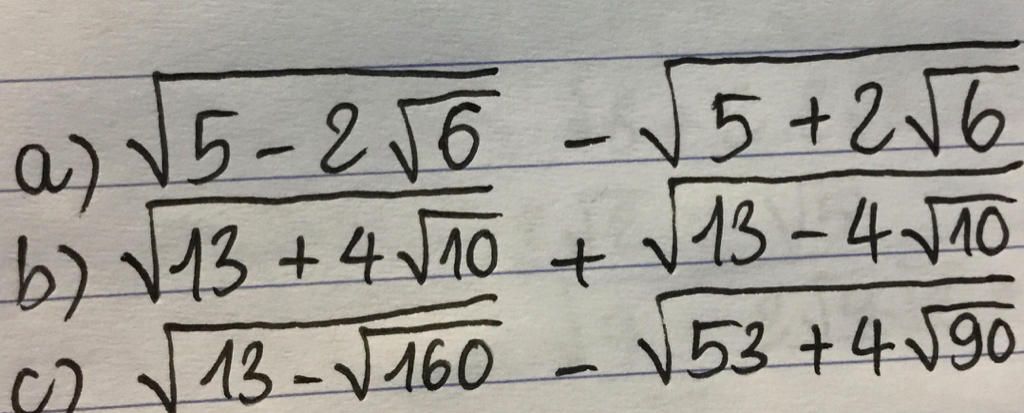 a) √(5 - 2√6) - √(5 + 2√6)
b) √(13 + 4√10) + √(13 - 4√10)
c) √(13 - √160) - √(53 + 4√90)